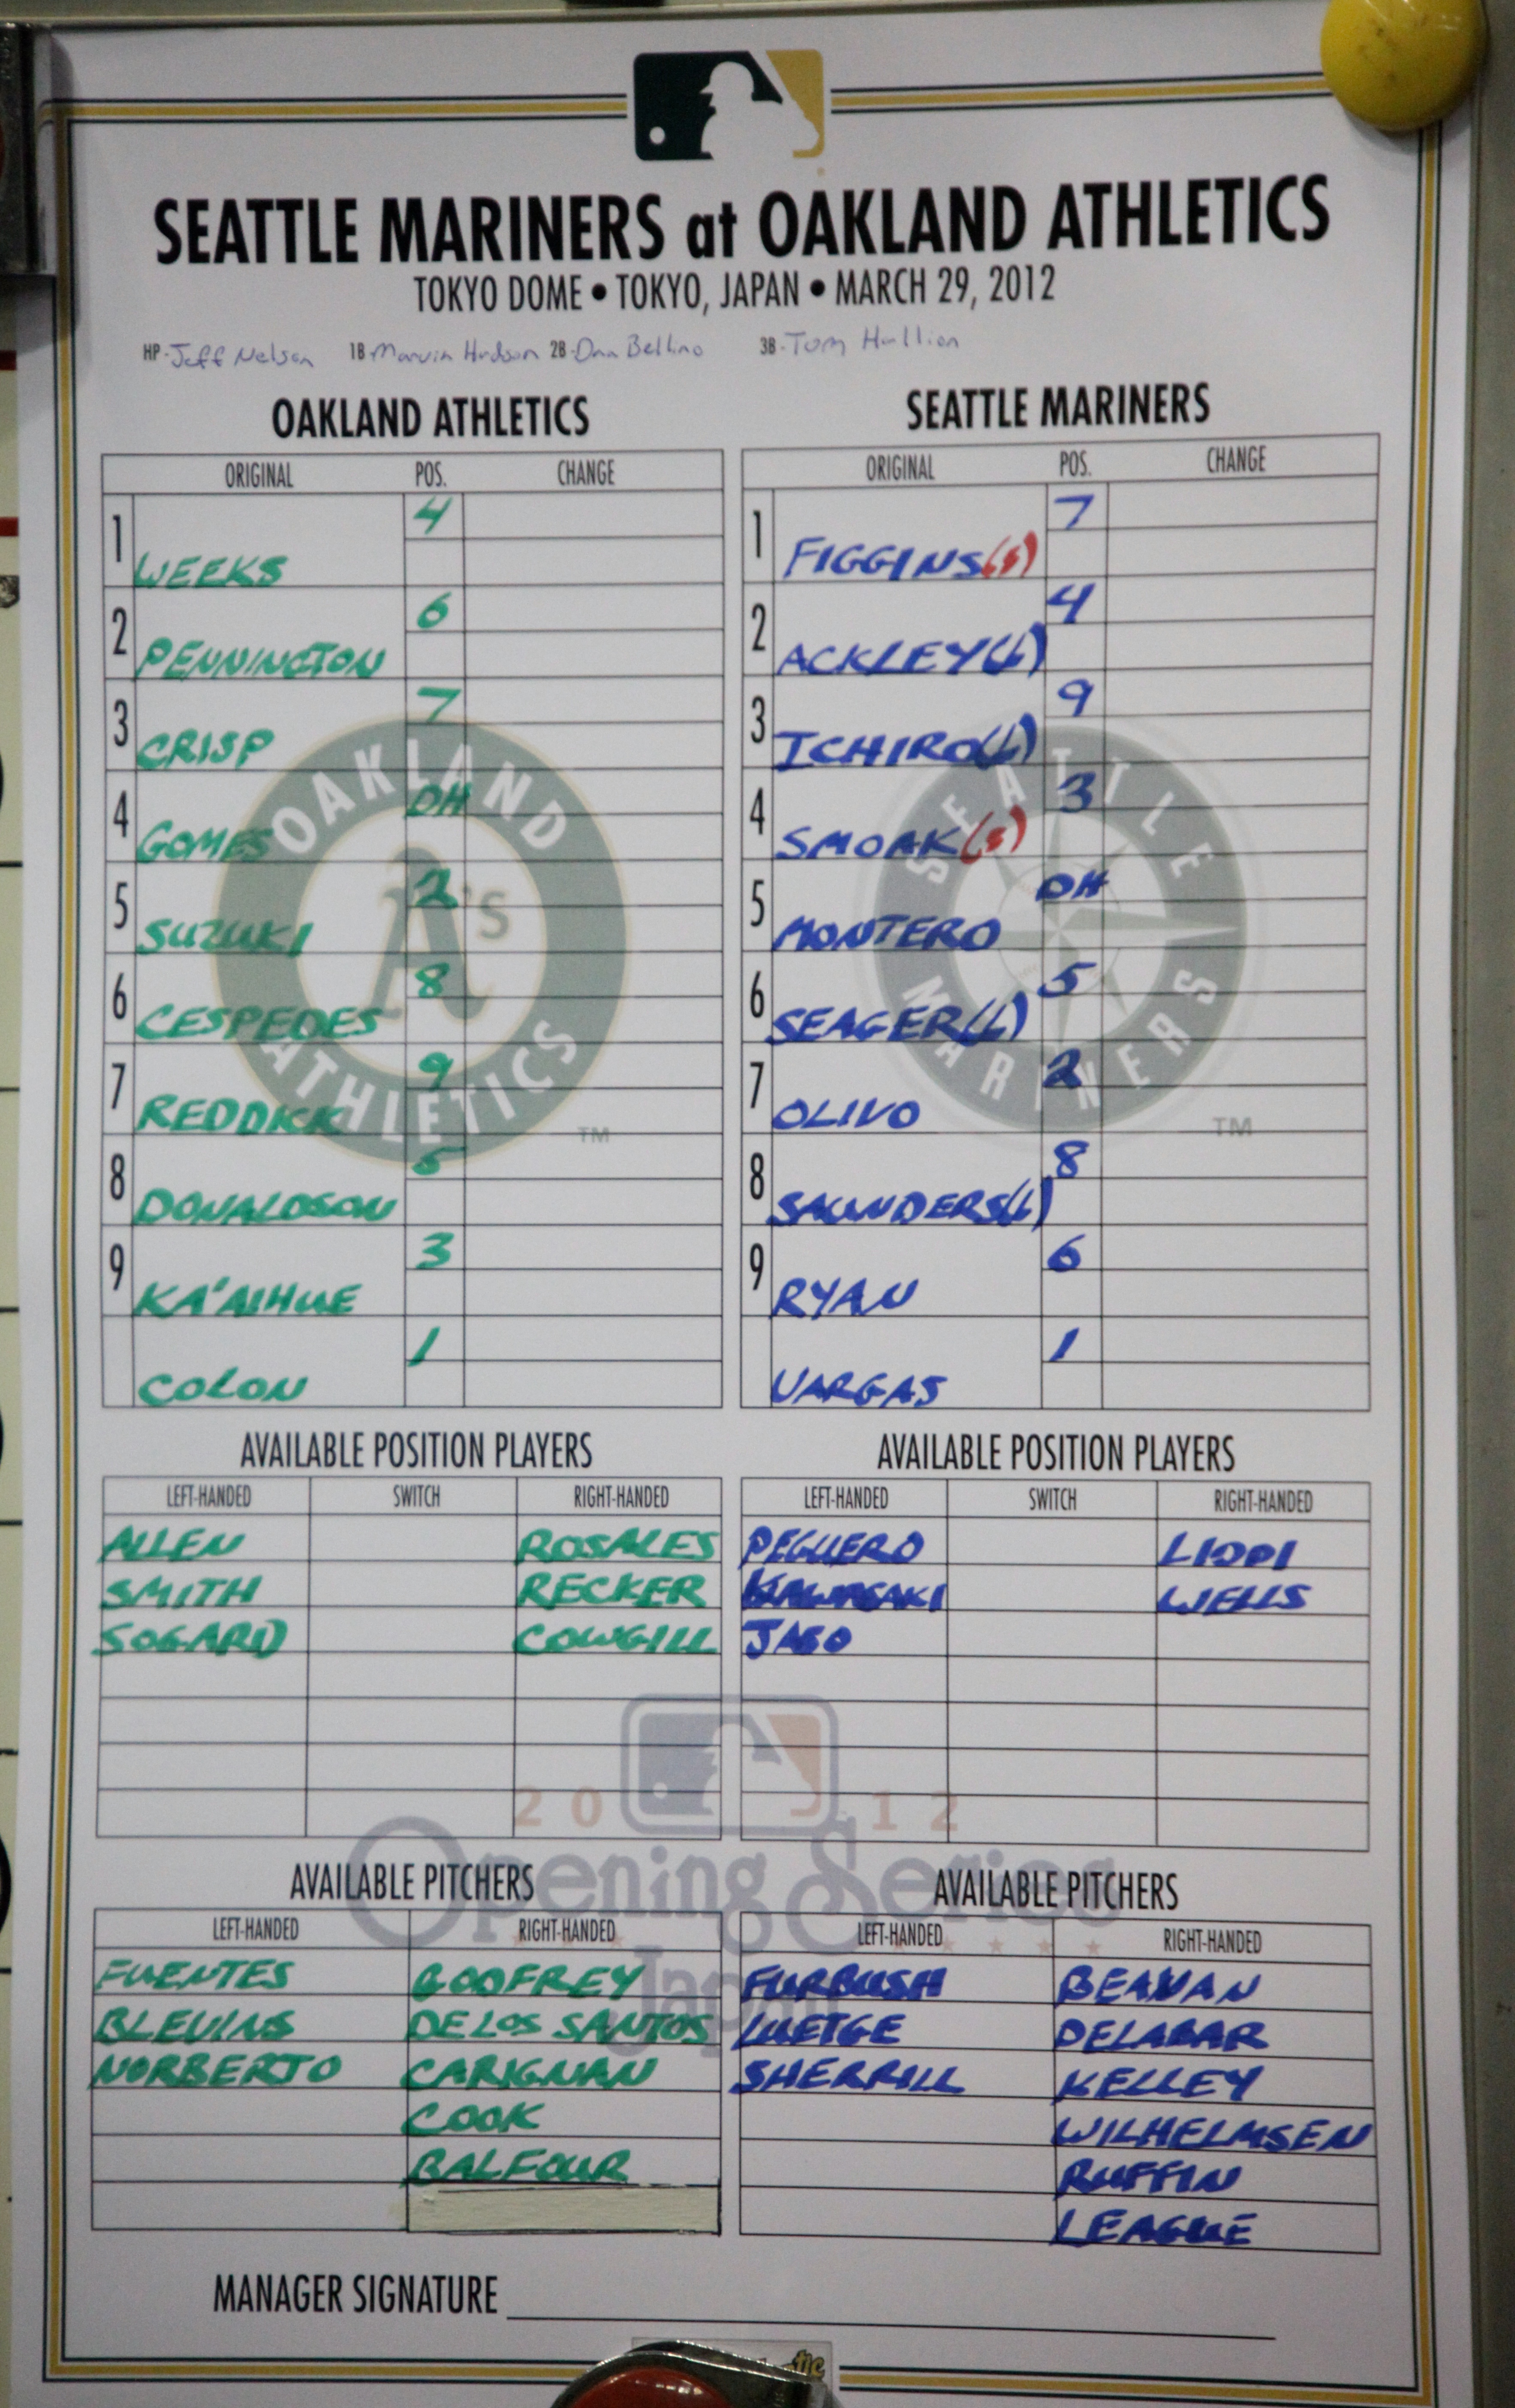 SEATTLE MARINERS at OAKLAND ATHLETICS
TOKYO DOME • TOKYO, JAPAN • MARCH 29, 2012
HP-Jeff Nelson 1B-Marvin Hudson 2B-Dan Bellino 3B-Tom Hallion
OAKLAND ATHLETICS
ORIGINAL POS. CHANGE
1 WEEKS 4
2 PENNINGTON 6
3 CRISP 7
4 GOMES DH
5 SUZUKI 2
6 CESPEDES 8
7 REDDICK 9
8 DONALDSON 5
9 KA'AIHUE 3
COLON 1
OAKLAND ATHLETICS
A's
TM
SEATTLE MARINERS
ORIGINAL POS. CHANGE
1 FIGGINS(S) 7
2 ACKLEY(L) 4
3 ICHIRO(L) 9
4 SMOAK(S) 3
5 MONTERO DH
6 SEAGER(L) 5
7 OLIVO 2
8 SAUNDERS(L) 8
9 RYAN 6
VARGAS 1
SEATTLE MARINERS
TM
AVAILABLE POSITION PLAYERS
LEFT-HANDED SWITCH RIGHT-HANDED
ALLEN ROSALES
SMITH RECKER
SOGARD COWGILL
AVAILABLE POSITION PLAYERS
LEFT-HANDED SWITCH RIGHT-HANDED
PEGUERO LIDDI
KAWASAKI WELLS
JASO
2012
Opening Series
Japan
AVAILABLE PITCHERS
LEFT-HANDED RIGHT-HANDED
FUENTES GODFREY
BLEVINS DE LOS SANTOS
NORBERTO CARIGNAN
COOK
BALFOUR
AVAILABLE PITCHERS
LEFT-HANDED RIGHT-HANDED
FURBUSH BEAVAN
LUETGE DELABAR
SHERRILL KELLEY
WILHELMSEN
RUFFIN
LEAGUE
MANAGER SIGNATURE